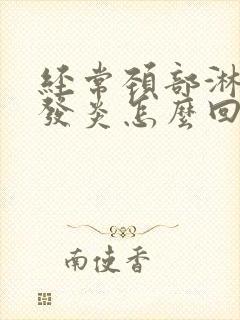 經常頸部淋
發炎怎麼回
南使香